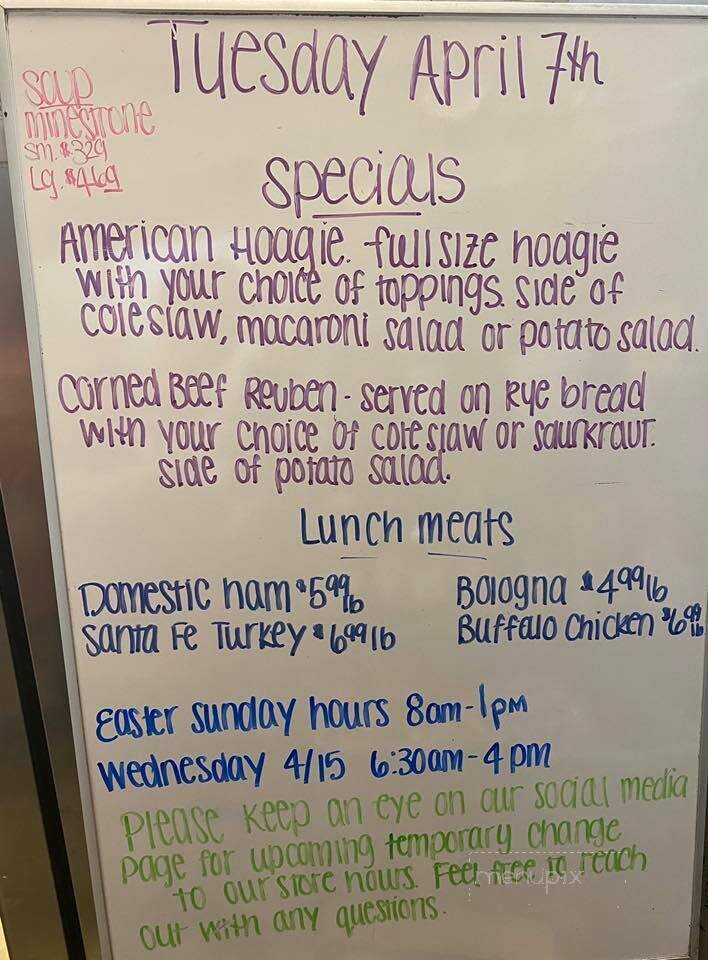 Tuesday April 7th
Soup
Minestrone
Sm. $3.29
Lg. $4.69
Specials
American Hoagie. full size hoagie
with your choice of toppings. side of
coleslaw, macaroni salad or potato salad.
Corned Beef Reuben - served on Rye bread
with your choice of coleslaw or saurkraut.
side of potato salad.
Lunch meats
Domestic ham $5.99 lb
Bologna $4.99 lb
Santa Fe Turkey $6.99 lb
Buffalo Chicken $6.99 lb
Easter Sunday hours 8am-1pm
Wednesday 4/15 6:30am-4pm
Please keep an eye on our social media
page for upcoming temporary change
to our store hours. Feel free to reach
out with any questions.
menupix